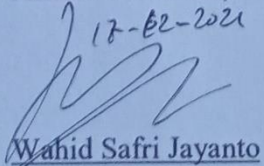 17-02-2021
Wahid Safri Jayanto